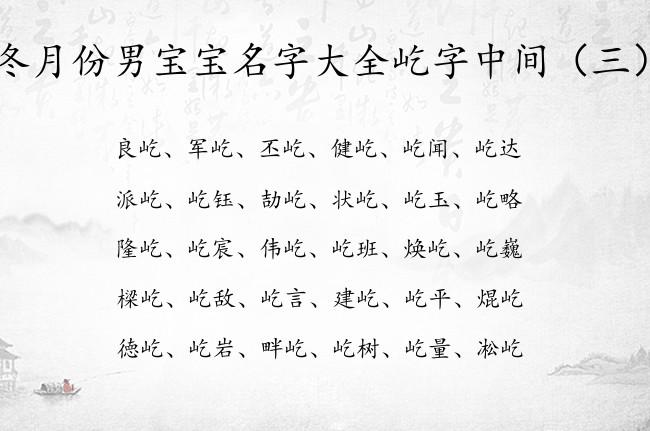 冬月份男宝宝名字大全屹字中间（三）
良屹、军屹、丕屹、健屹、屹闻、屹达
派屹、屹钰、劼屹、状屹、屹玉、屹略
隆屹、屹宸、伟屹、屹班、焕屹、屹巍
樑屹、屹敌、屹言、建屹、屹平、焜屹
德屹、屹岩、畔屹、屹树、屹量、凇屹